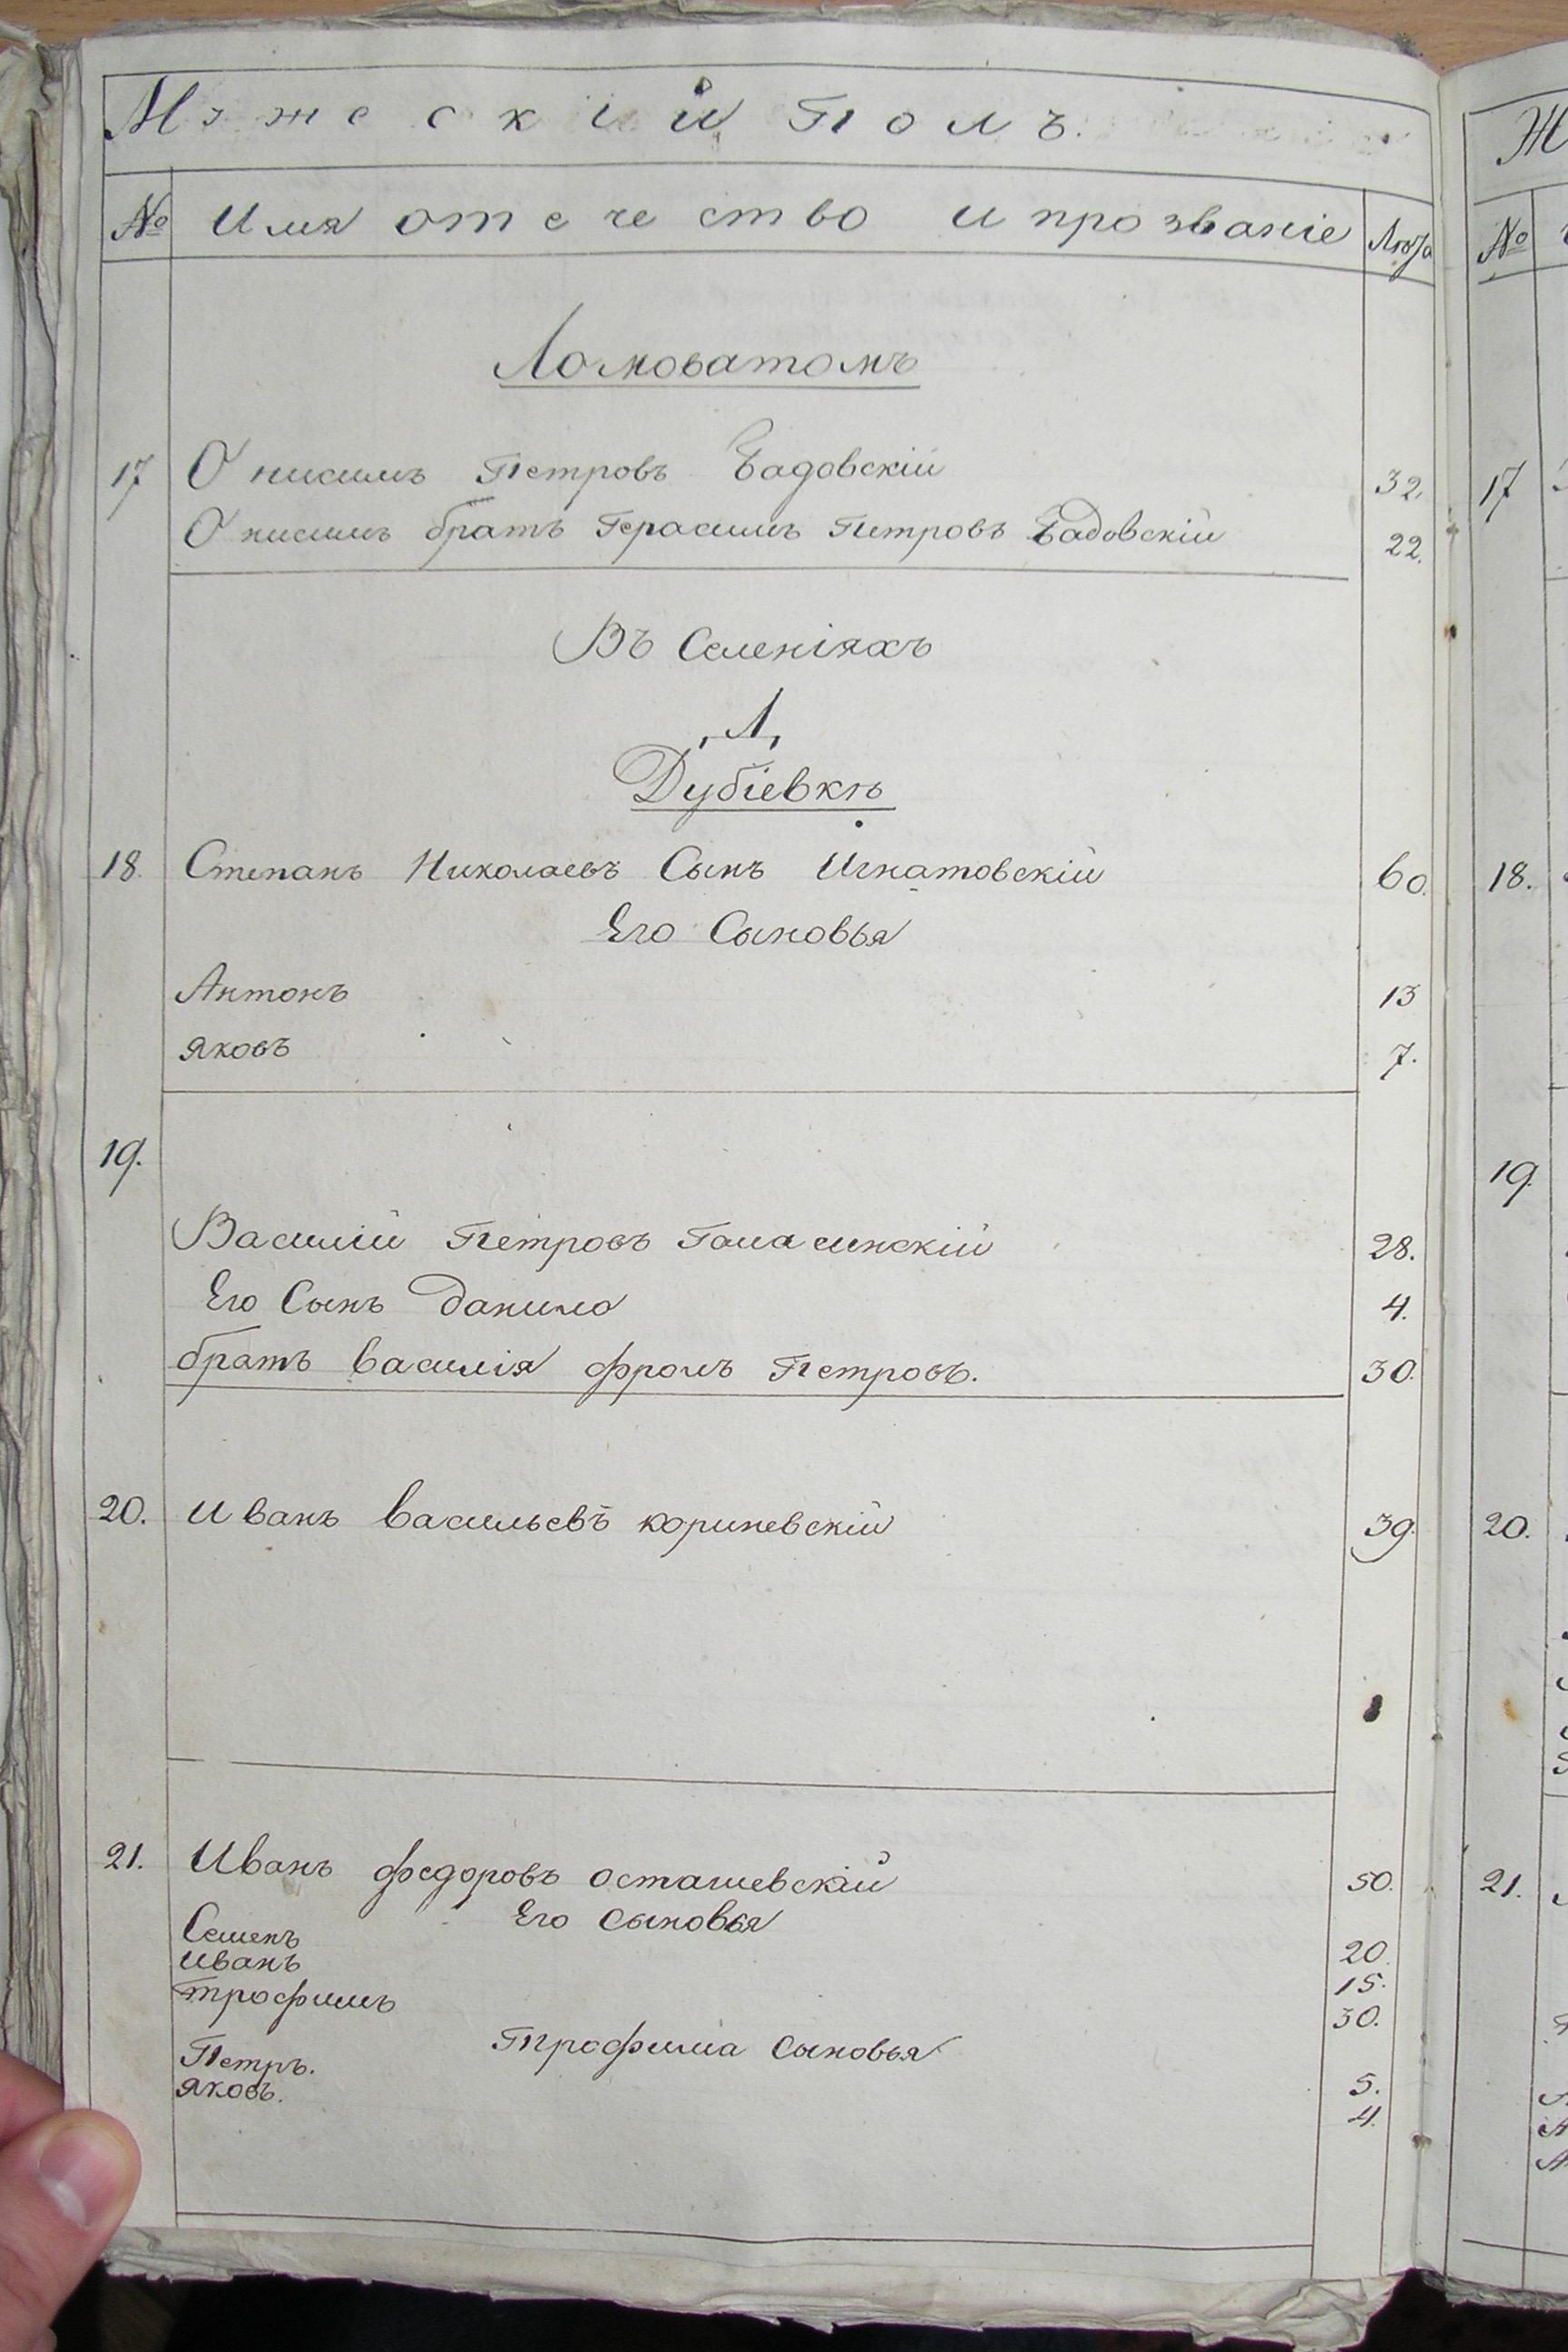 Мужескій Полъ.
№ Имя отечество и прозваніе Лѣта
Ломоватомъ
17 Онисимъ Петровъ Бадовскій 32.
Онисимъ братъ Герасимъ Петровъ Бадовскій 22.
Въ Селеніяхъ
Л
Дубіевкѣ
18. Степанъ Николаевъ Сынъ Игнатовскій 60.
Его Сыновья
Антонъ 13
Яковъ 7.
19.
Василій Петровъ 28.
Его Сынъ Данило 4.
братъ василія фролъ Петровъ. 30.
20. Иванъ васильевъ кориневскій 39.
21. Иванъ федоровъ осташевскій 50.
Его сыновья
Семенъ 20.
Иванъ 15.
трофимъ 30.
Трофима сыновья
Петръ. 5.
Яковъ. 4.
№
17
18.
19.
20.
21.